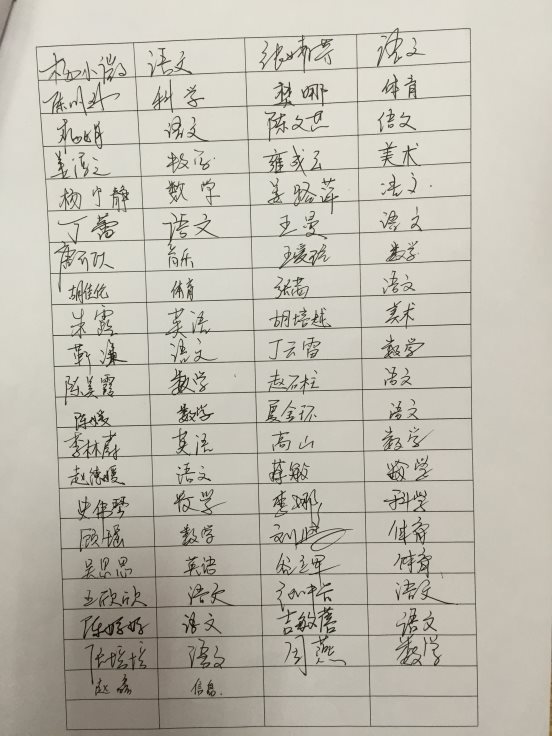 杨小微 语文 张婧芳 语文
陈明 科学 樊娜 体育
语文 陈文芭 语文
姜 数学 雍成云 美术
杨宁静 数学 姜路萍 语文
丁蕾 语文 王曼 语文
音乐 王爱琴 数学
胡佳伦 体育 张茜 语文
朱霞 英语 胡培越 美术
靳濂 语文 丁云雷 数学
陈美霞 数学 赵石柱 语文
陈媛 数学 夏金环 语文
李林蔚 英语 高山 数学
赵德媛 语文 蒋敏 数学
史伟琴 数学 李娜 科学
顾堰 数学 刘 体育
吴思思 英语 军 体育
王欣欣 语文 语文
陈婷婷 语文 吉敏蓓 语文
陈培培 语文 周燕 数学
赵磊 信息